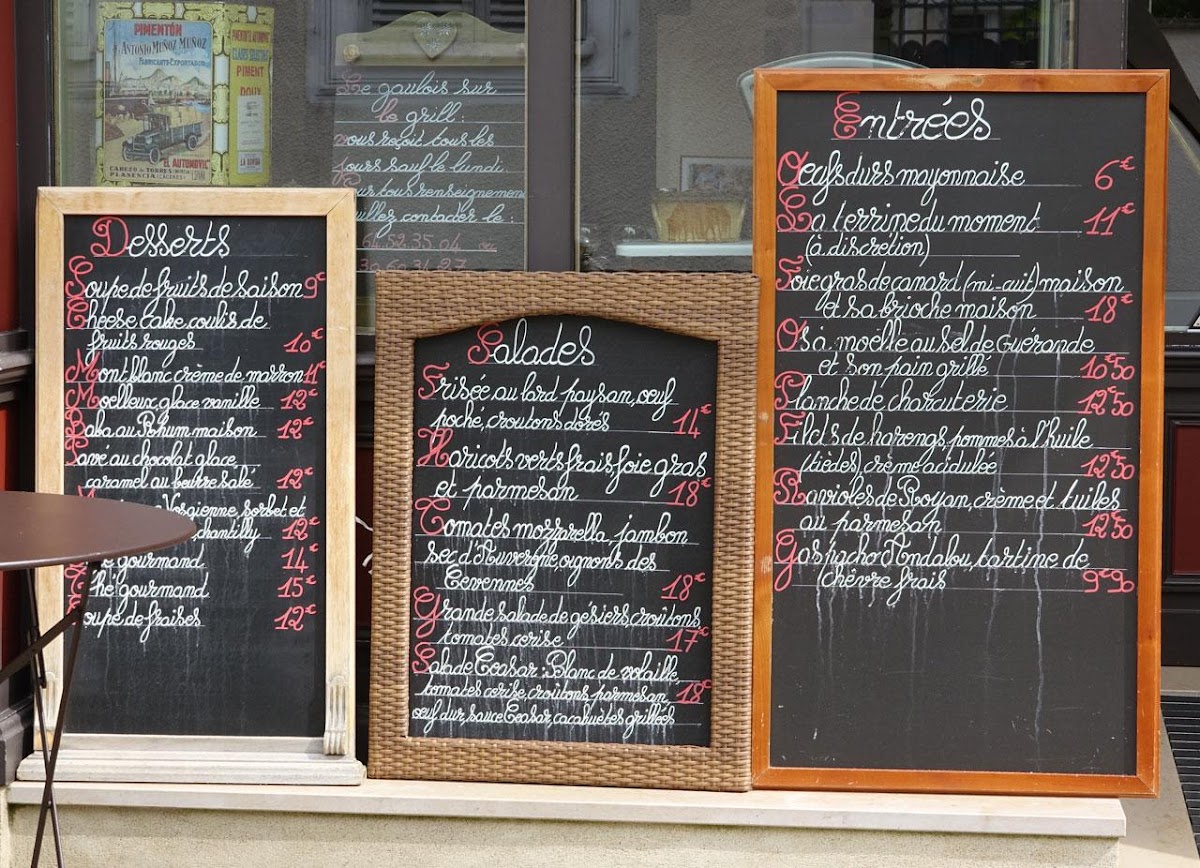 PIMENTÓN
ANTONIO MUÑOZ MUÑOZ
FABRICANTE EXPORTADOR
EL AUTOMOVIL
CABEZO DE TORRES
PLASENCIA (CÁCERES)
PIMENT
DOUX
Le gaulois sur
le grill :
vous reçoit tous les
jours sauf le lundi
Pour tous renseignement
veuillez contacter le :
64.52.35.04 ou
Desserts
Soupe de fruits de saison 9€
Cheese Cake coulis de
fruits rouges 10€
Mont blanc crème de marron 11€
Moelleux, glace vanille 12€
Baba au Rhum maison 12€
Pavé au chocolat glace
caramel au beurre salé 12€
Vosgienne, sorbet et
chantilly 12€
gourmand 14€
Thé gourmand 15€
Coupe de fraises 12€
Salades
Frisée au lard paysan, oeuf
poché, croutons dorés 14€
Haricots verts frais foie gras
et parmesan 18€
Tomates mozzarella, jambon
sec d'Auvergne, oignons des
Cevennes 18€
Grande salade de gésiers, croûtons
tomates cerise 17€
Salade Ceasar : Blanc de volaille,
tomates cerise, croûtons, parmesan 18€
oeuf dur, sauce Ceasar, cacahuètes grillées
Entrées
Oeufs durs mayonnaise 6€
La terrine du moment 11€
(à discretion)
Foie gras de canard (mi-cuit) maison
et sa brioche maison 18€
Os à moëlle au sel de Guérande
et son pain grillé 10€50
Planche de charcuterie 12€50
Filets de harengs, pommes à l'huile
(tièdes), crème acidulée 12€50
Ravioles de Royan, crème et tuiles
au parmesan 12€50
Gaspacho Andalou, tartine de
chèvre frais 9€90